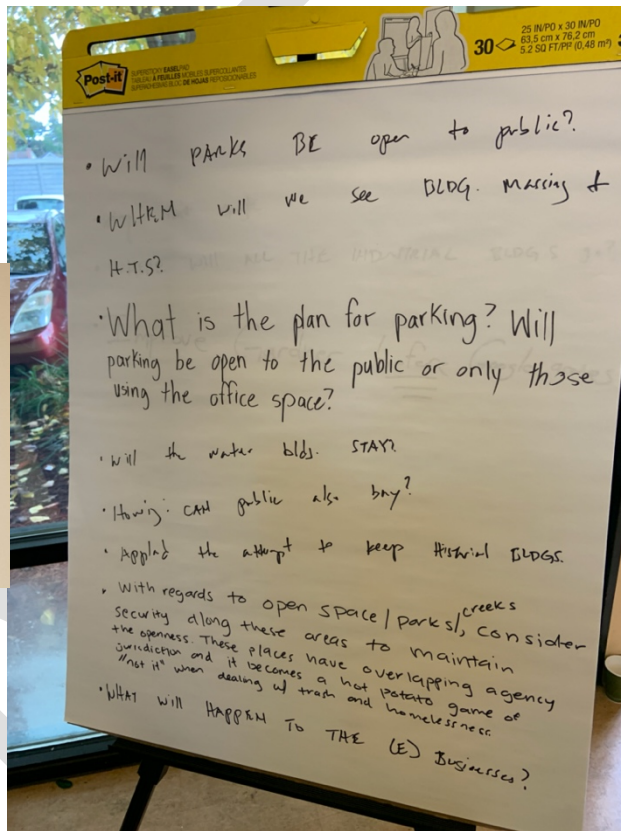 Post-it
SUPERSTICKY EASEL PAD
TABLEAU À FEUILLES MOBILES SUPERCOLLANTES
SUPERADHESIVAS BLOC DE HOJAS REPOSICIONABLES
30
25 IN/PO x 30 IN/PO
63,5 cm x 76,2 cm
5.2 SQ FT/PI² (0,48 m²)
• Will PARKS BE open to public?
• WHEM will we see BLDG. Massing +
H.T.S?
• What is the plan for parking? Will
parking be open to the public or only those
using the office space?
• will the water blds. STAY?
• Hows'g: CAN public also buy?
• Applad the attempt to keep Histrial BLDGS.
• With regards to open space/parks/, creeks consider
security along these areas to maintain
the openness. These places have overlapping agency
jurisdiction and it becomes a hot potato game of
"not it" when dealing w/ trash and homelessness.
• WHAT will HAPPEN TO THE (E) Businesses?